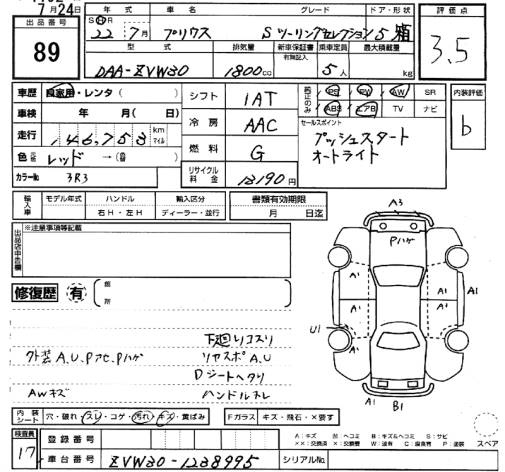 7月24日
出品番号
89
年式 車名 グレード ドア・形状
S H R 22年 7月 プリウス Sツーリングセレクション 5 箱
型式 排気量 新車保証書 有無記入 乗車定員 最大積載量
DAA-ZVW30 1800cc 5人 kg
評価点
3.5
車歴 自家用・レンタ( )
車検 年 月( )
走行 146,753 km マイル
色 元色 レッド →(替 )
カラーNo 3R3
シフト 1AT
冷房 AAC
燃料 G
リサイクル料金 12190円
純正のみ PS PW AW SR
ABS エアB TV ナビ
セールスポイント
プッシュスタート
オートライト
内装評価
b
輸入車 モデル年式 ハンドル 輸入区分 書類有効期限
右H・左H ディーラー・並行 月 日迄
出品店申告欄 ※注意事項等記載
修復歴 有 箇所
下廻リコスリ
外装A.U.PアセPハゲ リヤスポA.U
Dシートヘタリ
AWキズ ハンドルスレ
A3
Pハゲ
A1 A1
A1 A1 A1
U1
A1 B1
内装シート 穴・破れ・スレ・コゲ・汚れ・キズ・黄ばみ Fガラス キズ・飛石・×要す
検査員 17
登録番号
車台番号 ZVW30-1238995 シリアルNo.
A:キズ U:凹ミ B:キズ&ヘコミ S:サビ
××:交換済 ×:交換 W:波有 C:腐食有 P:塗装
スペア